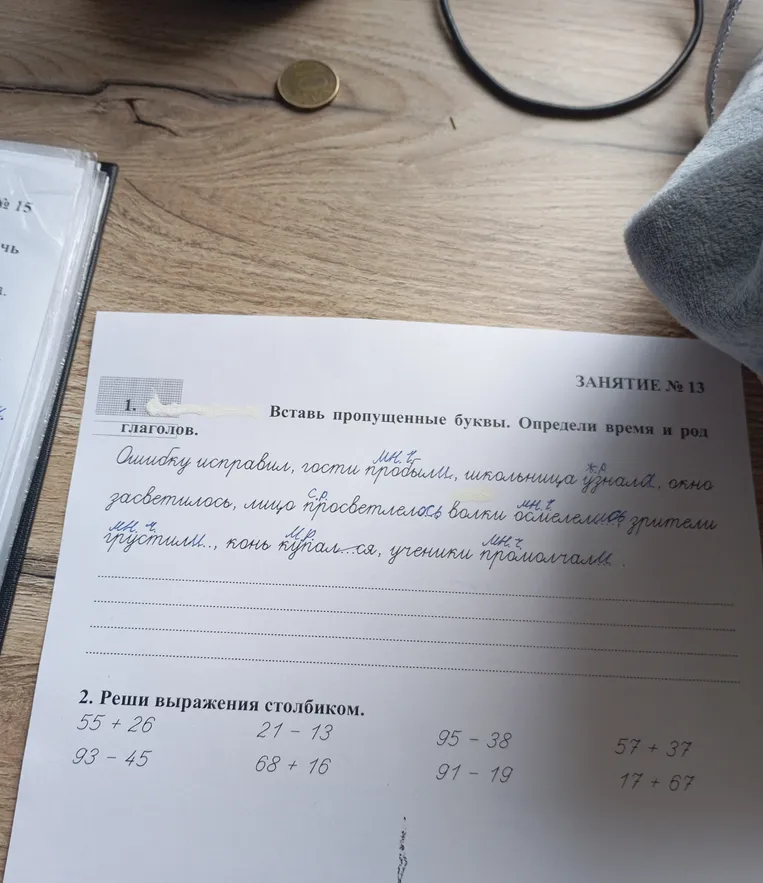 № 15
чь
ЗАНЯТИЕ № 13
1. Вставь пропущенные буквы. Определи время и род
глаголов.
мн. ч. ж.р
Ошибку исправил, гости пробыли, школьница узнала, окно
с.р. мн. ч
засветилось, лицо просветлелось волки осмелелись зрители
мн. ч. м.р. мн. ч
грустили.., конь купал...ся, ученики промолчали.
2. Реши выражения столбиком.
55 + 26 21 - 13 95 - 38 57 + 37
93 - 45 68 + 16 91 - 19 17 + 67